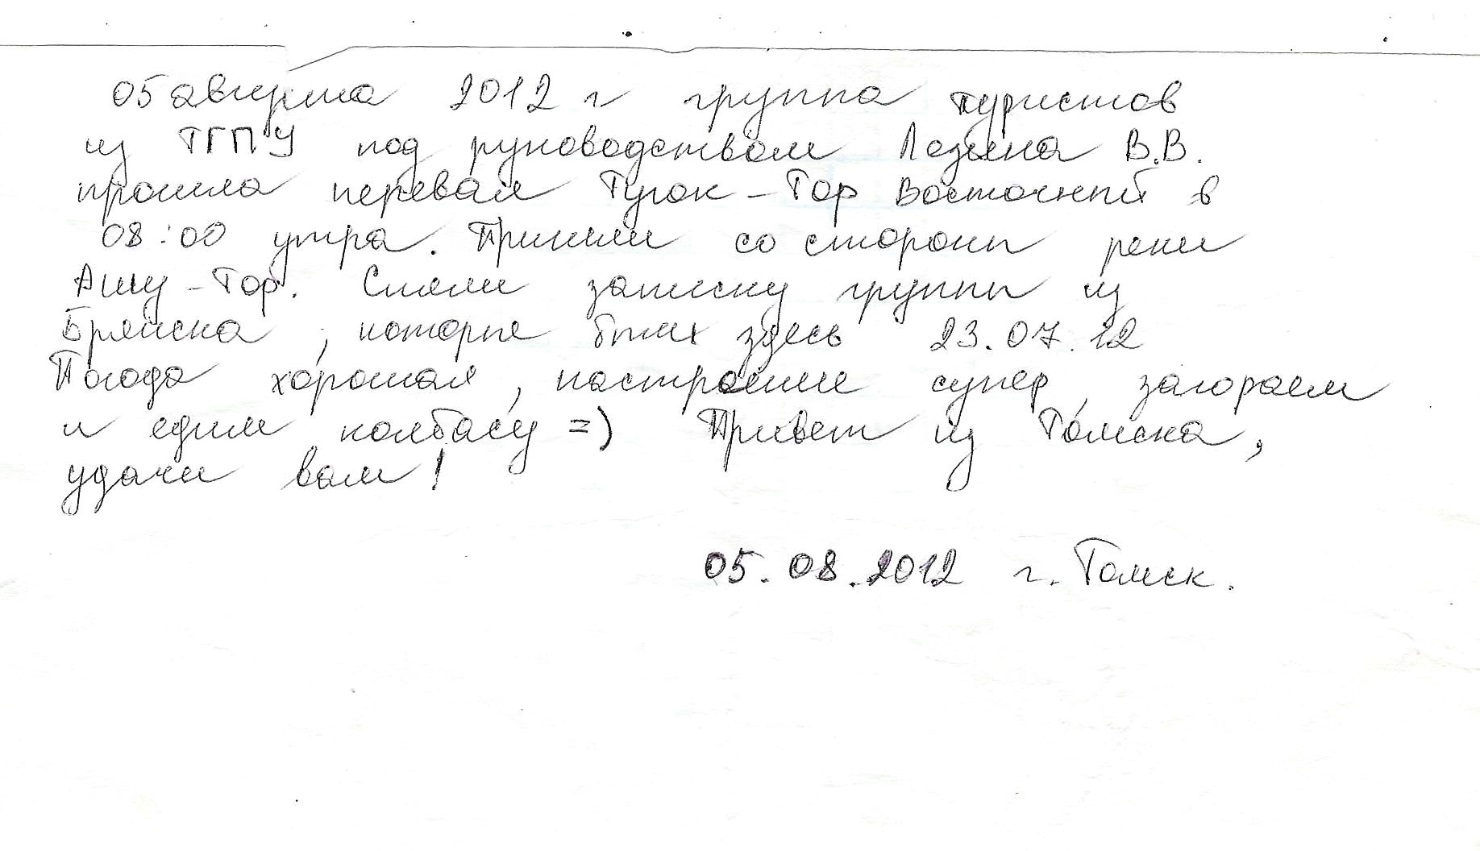 05 августа 2012 г группа туристов
из ТГПУ под руководством Лозина В.В.
прошла перевал Турок-Тор Восточный в
08:00 утра. Пришли со стороны реки
Ашу-Тор. Сняли записку группы из
Брянска, которые были здесь 23.07.12
Погода хорошая, настроение супер, загораем
и едим колбасу =) Привет из Томска,
удачи вам!
05.08.2012 г. Томск.